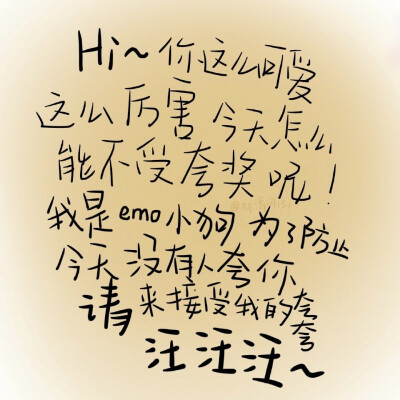 Hi~你这么可爱
这么厉害 今天怎么
能不受夸奖呢！
我是emo小狗 为了防止
今天没有人夸你
请来接受我的夸夸
汪汪汪~